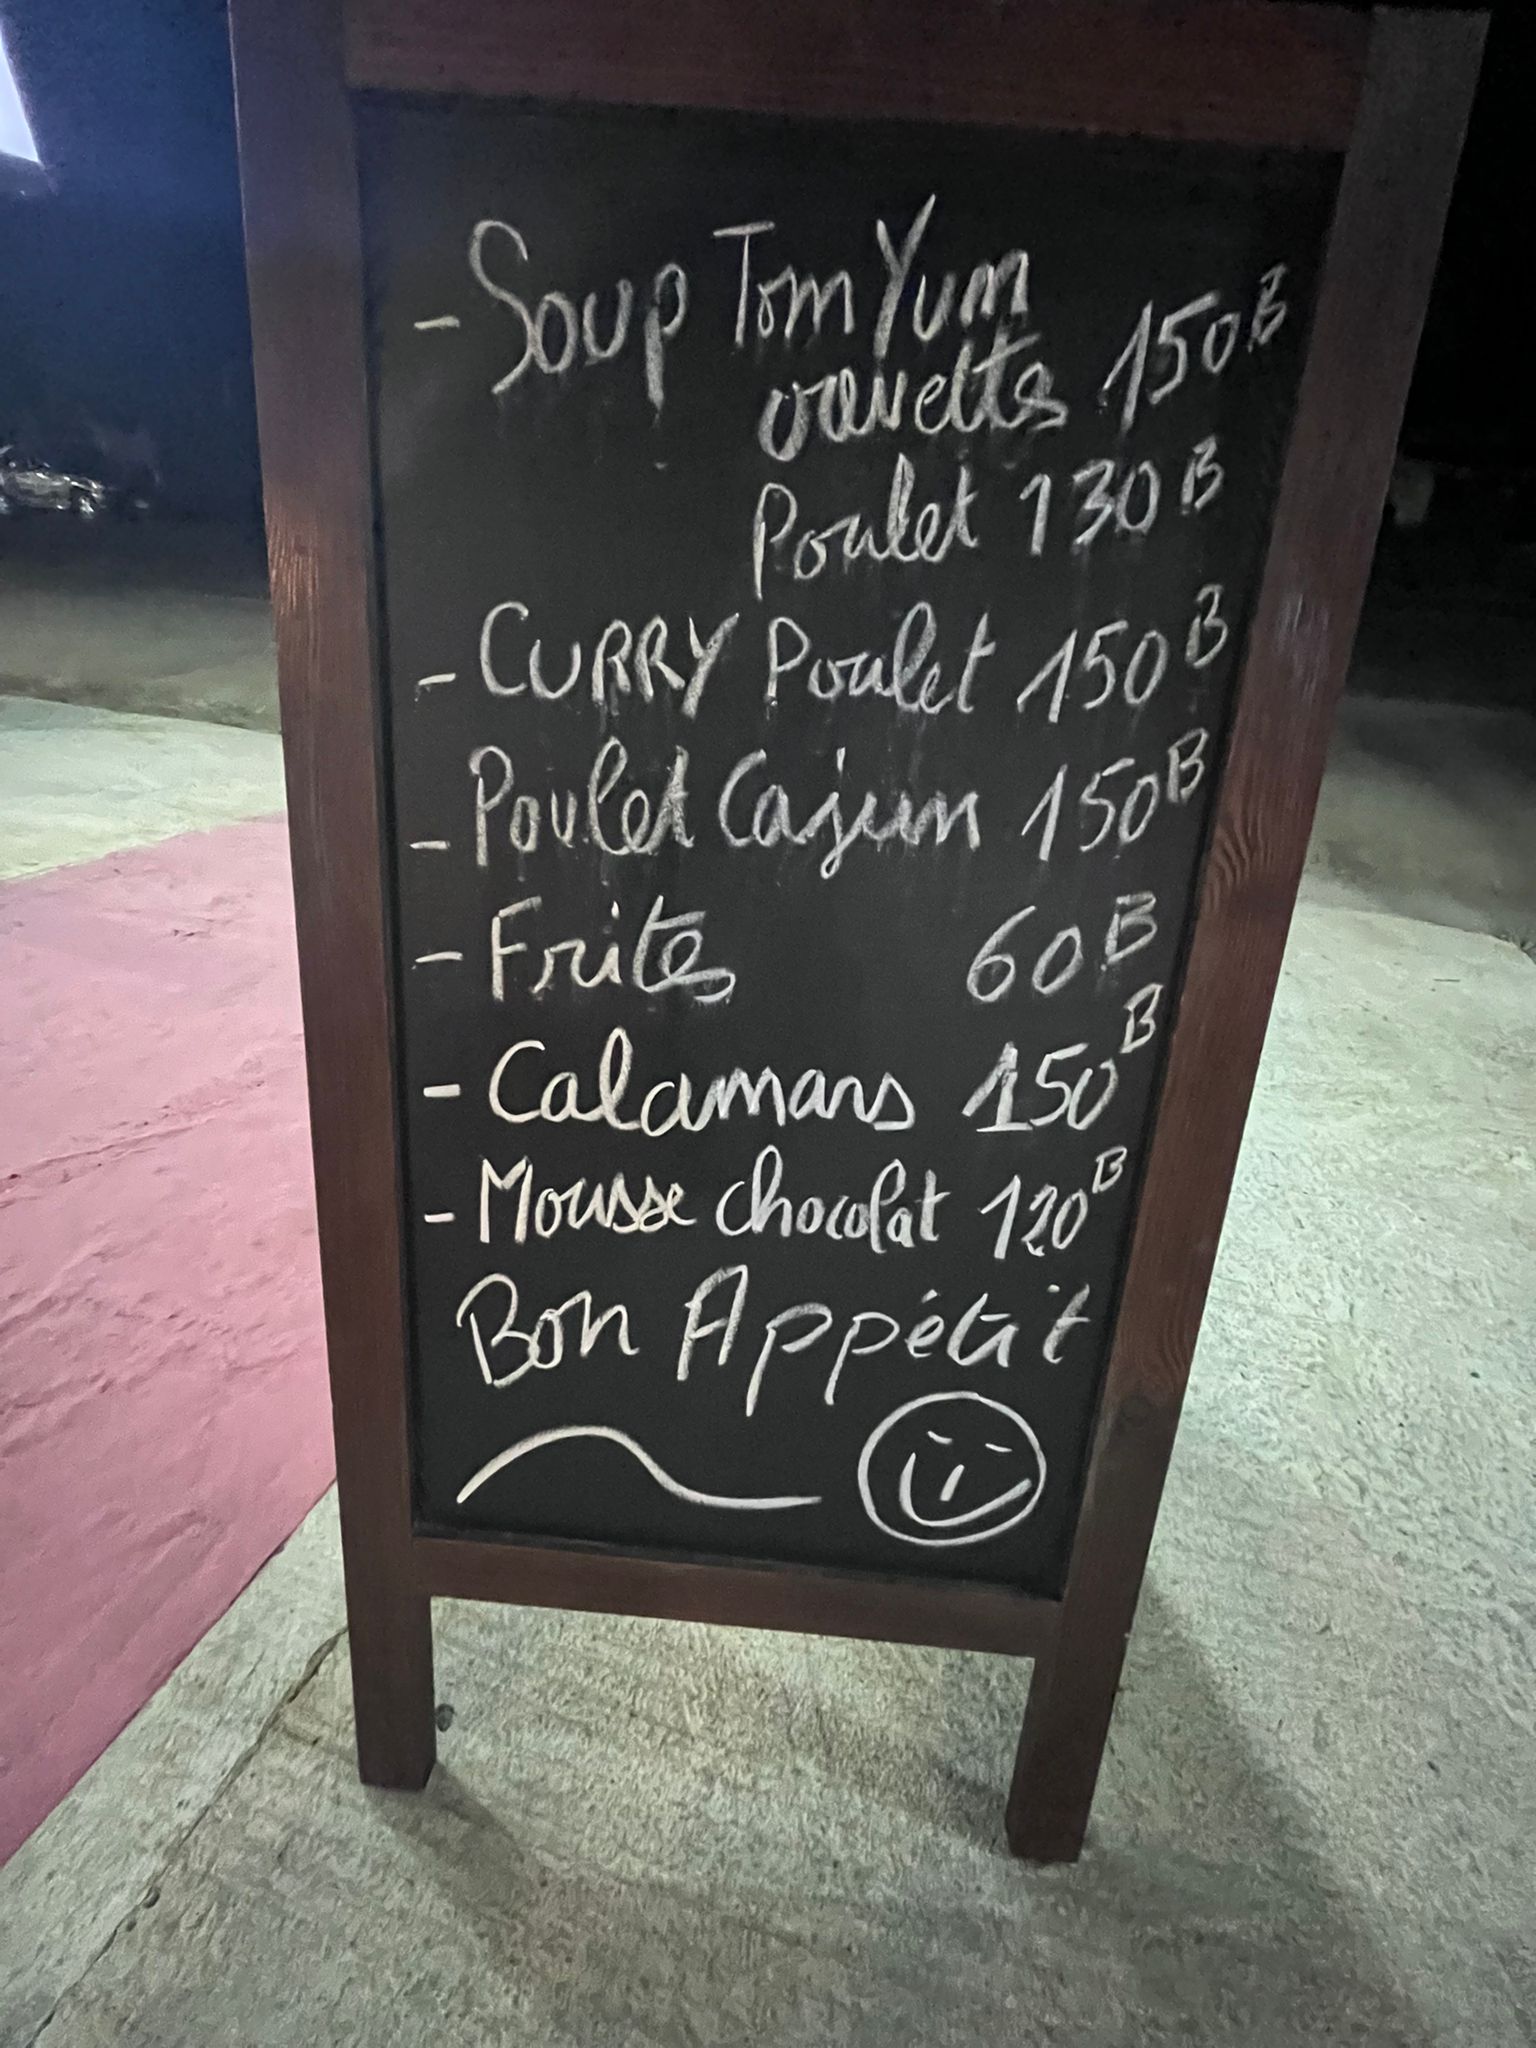 - Soup Tom Yum
crevettes 150B
Poulet 130B
- CURRY Poulet 150B
- Poulet Cajun 150B
- Frites 60B
- Calamars 150B
- Mousse chocolat 120B
Bon Appétit